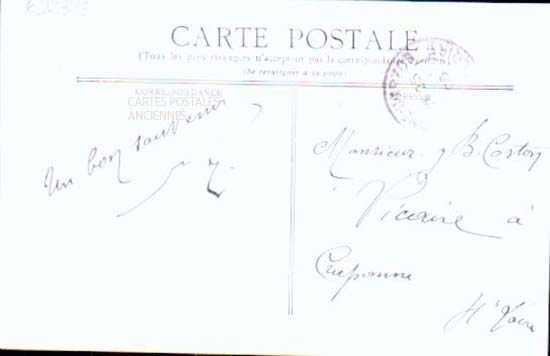 CARTE POSTALE
(Tous les pays étrangers n'acceptent pas la correspondance au
(Se renseigner à la poste)
CORRESPONDANCE
CARTES POSTALES
ANCIENNES
Un bon souvenir
Monsieur J B. Coston
Vicaire à
Craponne
Hte Loire